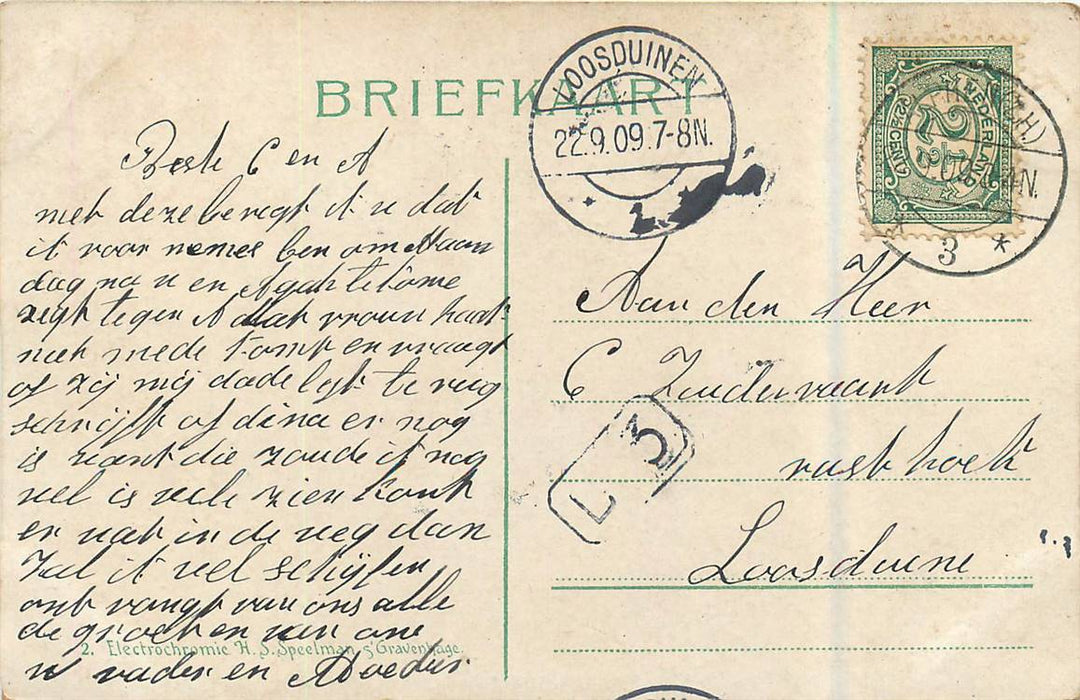 BRIEFKAART
LOOSDUINEN
22.9.09.7-8N.
NEDERLAND
2½ CENT
2½
3
Beste C en A
met deze beregt ik u dat
ik voor nemes ben om Maan
dag na u en Agah te kome
zegt tegen A dat vrouw haar
niet mede komt en vraagt
of zij mij dade lijk te rug
schrijft of dina er nog
is want die zoude ik nog
wel is wele zien kont
er wat in de weg dan
Zal ik wel schijfen
ont vangt van ons alle
de groet en van ons
u vader en Moeder
2. Electrochromie H. S. Speelman, s'Gravenhage.
Aan den Heer
C Zuiderwant
vast hoek
Loosduine
L 3